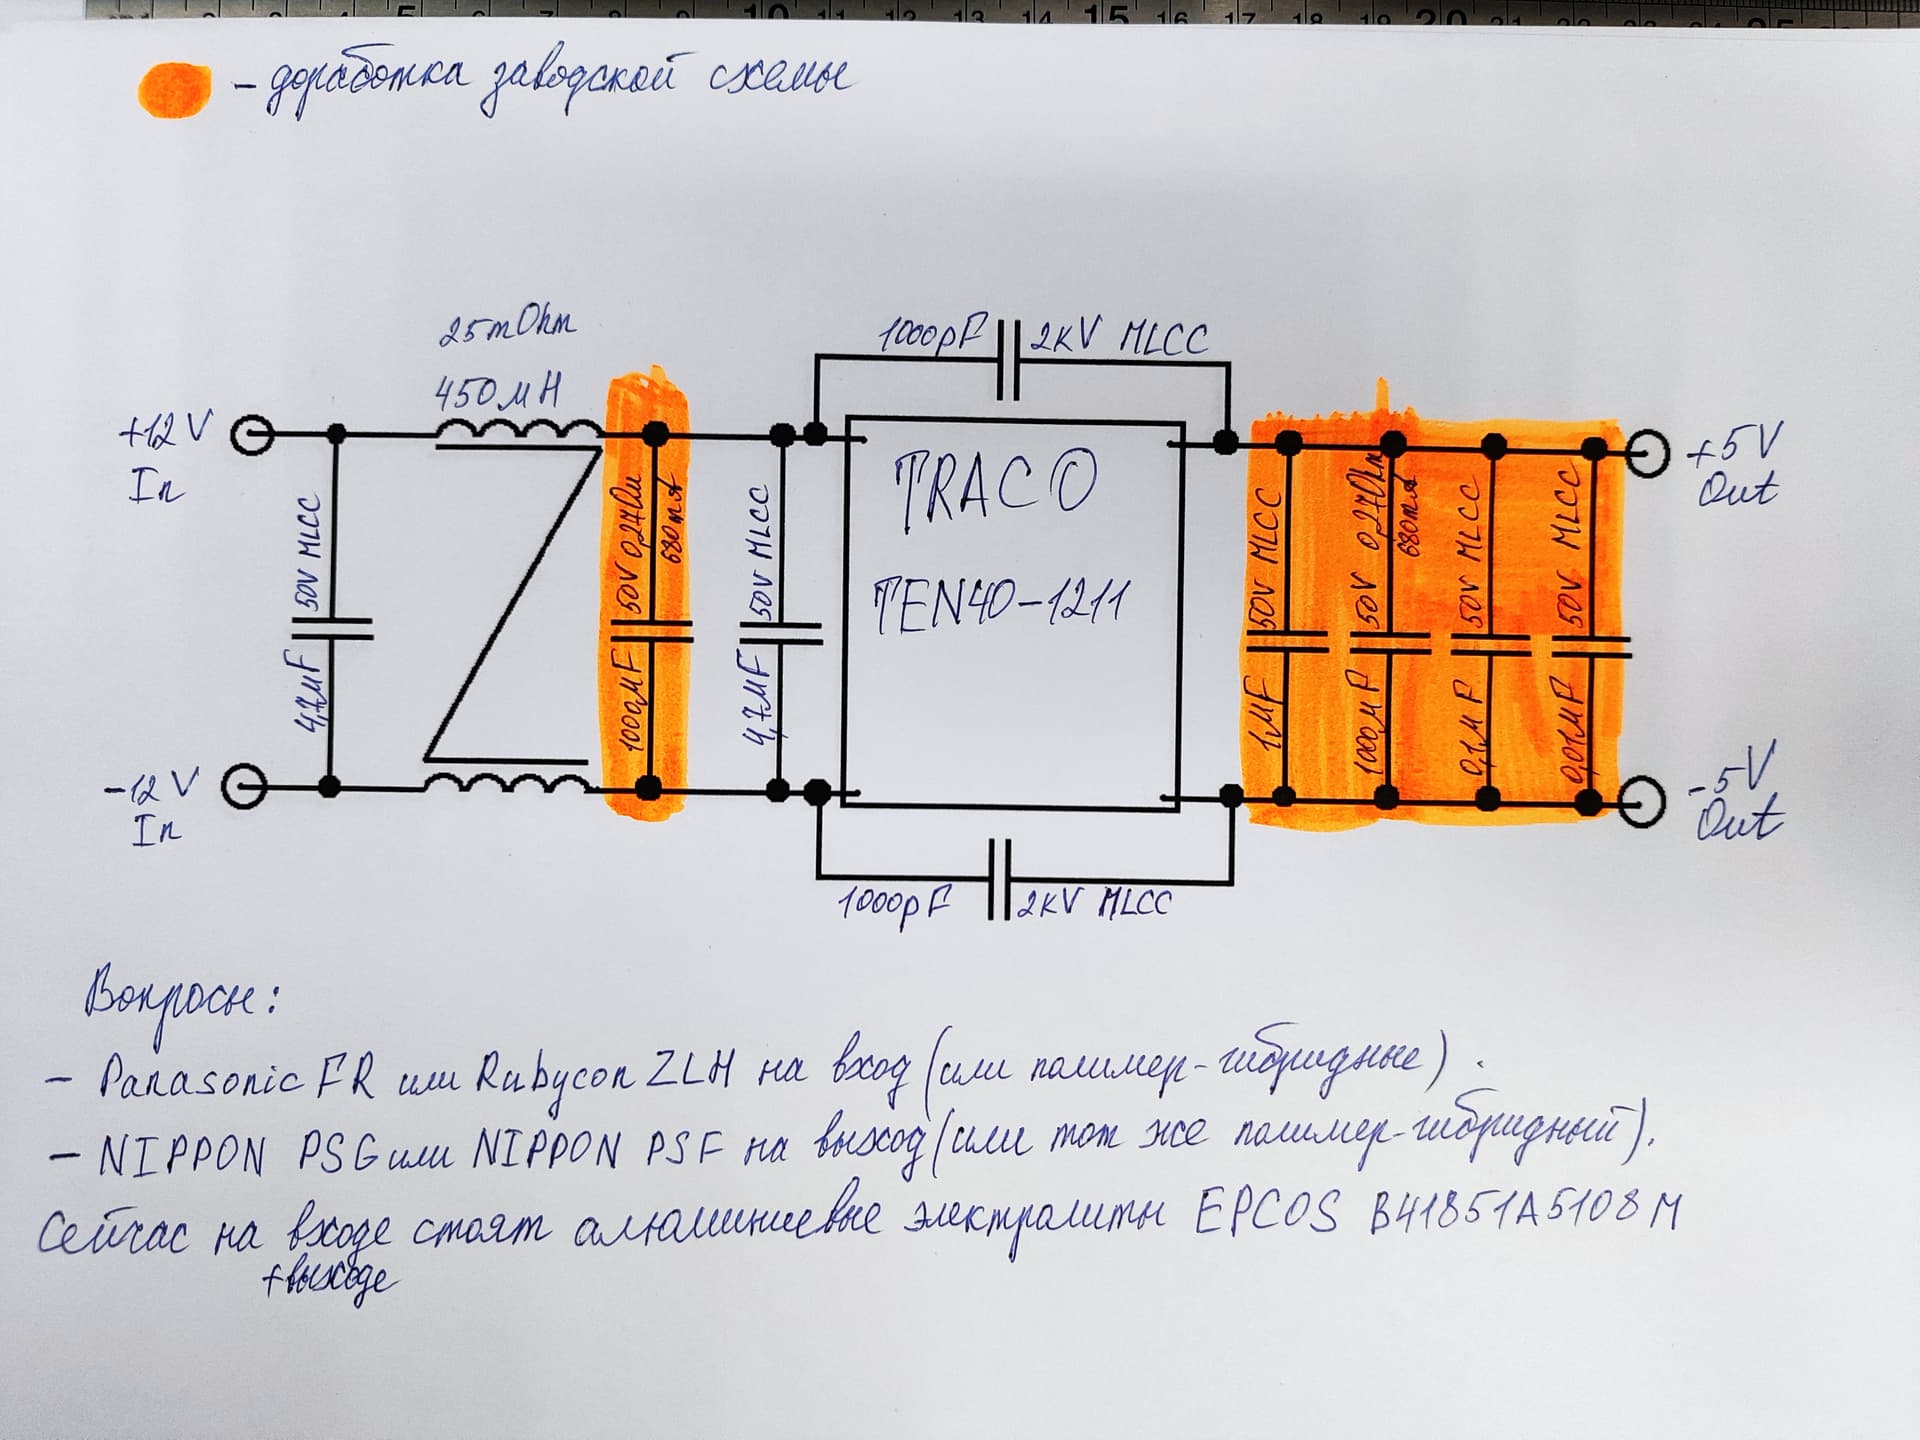 5 10 11 12 13 14 15 16 17 18 19 20 21 22
- доработка заводской схемы
25mOhm
450мН
1000pF 2kV MLCC
+12V
In
4,7мF 50V MLCC
1000мF 50V 0,27Ohm
680mA
4,7мF 50V MLCC
TRACO
TEN40-1211
1мF 50V MLCC
1000мF 50V 0,27Ohm
680mA
0,1мF 50V MLCC
0,01мF 50V MLCC
+5V
Out
-12V
In
-5V
Out
1000pF 2kV MLCC
Вопросы:
- Panasonic FR или Rubycon ZLH на вход (или полимер-гибридные).
- NIPPON PSG или NIPPON PSF на выход (или тот же полимер-гибридный).
Сейчас на входе стоят алюминиевые электролиты EPCOS B41851A5108M
+выходе